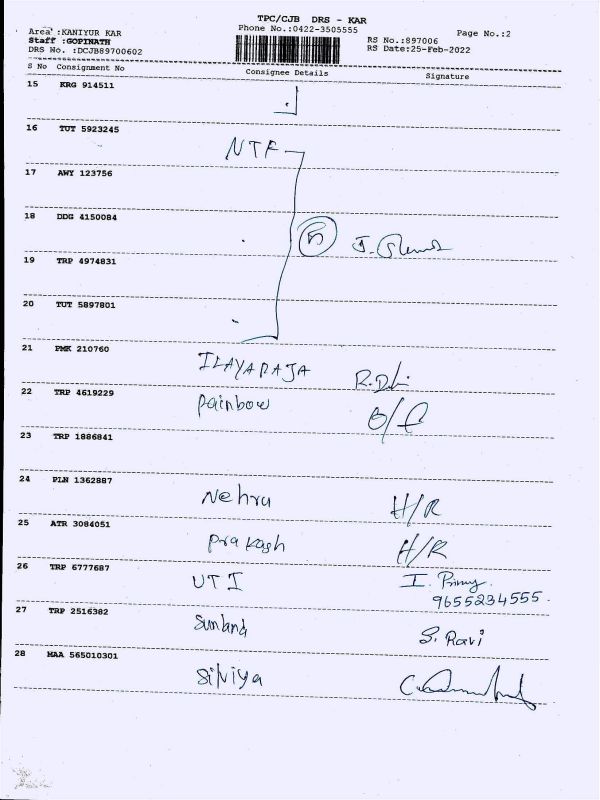 TPC/CJB DRS - KAR
Area :KANIYUR KAR Phone No.:0422-3505555 RS No.:897006 Page No.:2
Staff :GOPINATH RS Date:25-Feb-2022
DRS No. :DCJB89700602
S No Consignment No Consignee Details Signature
15 KRG 914511
16 TUT 5923245
NTF
17 AWY 123756
18 DDG 4150084
5 J.
19 TRP 4974831
20 TUT 5897801
21 PMK 210760
ILAYARAJA
22 TRP 4619229
Rainbow O/C
23 TRP 1886841
24 PLN 1362887
Nehru H/R
25 ATR 3084051
Prakash H/R
26 TRP 6777687
UTI I.
9655234555.
27 TRP 2516382
Sunland S. Ravi
28 MAA 565010301
Silviya